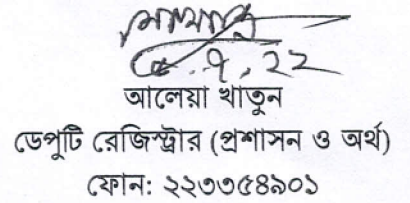 ৭.২২
আলেয়া খাতুন
ডেপুটি রেজিস্ট্রার (প্রশাসন ও অর্থ)
ফোন: ২২৩৩৫৪৯০১